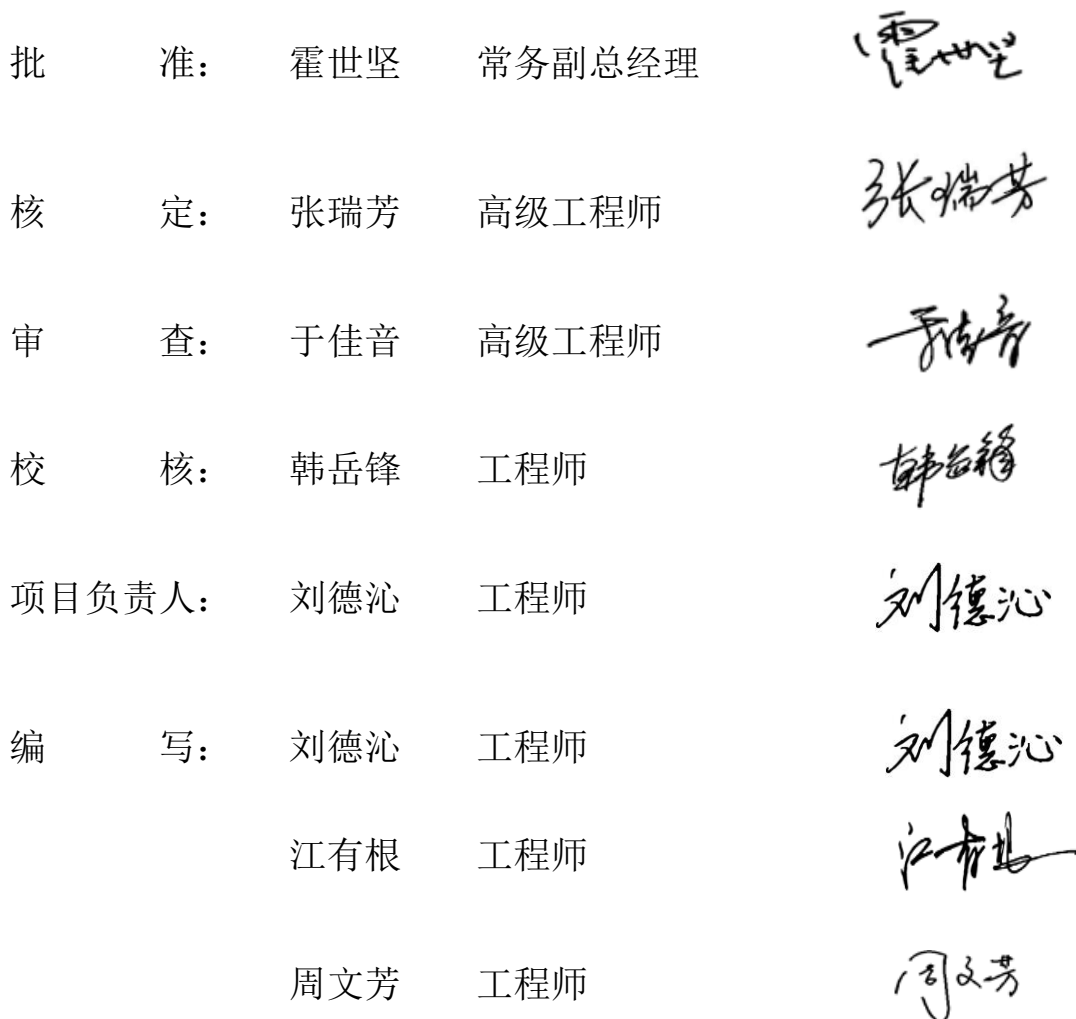 批 准： 霍世坚 常务副总经理 霍世坚
核 定： 张瑞芳 高级工程师 张瑞芳
审 查： 于佳音 高级工程师 于佳音
校 核： 韩岳锋 工程师 韩岳锋
项目负责人： 刘德沁 工程师 刘德沁
编 写： 刘德沁 工程师 刘德沁
江有根 工程师 江有根
周文芳 工程师 周文芳